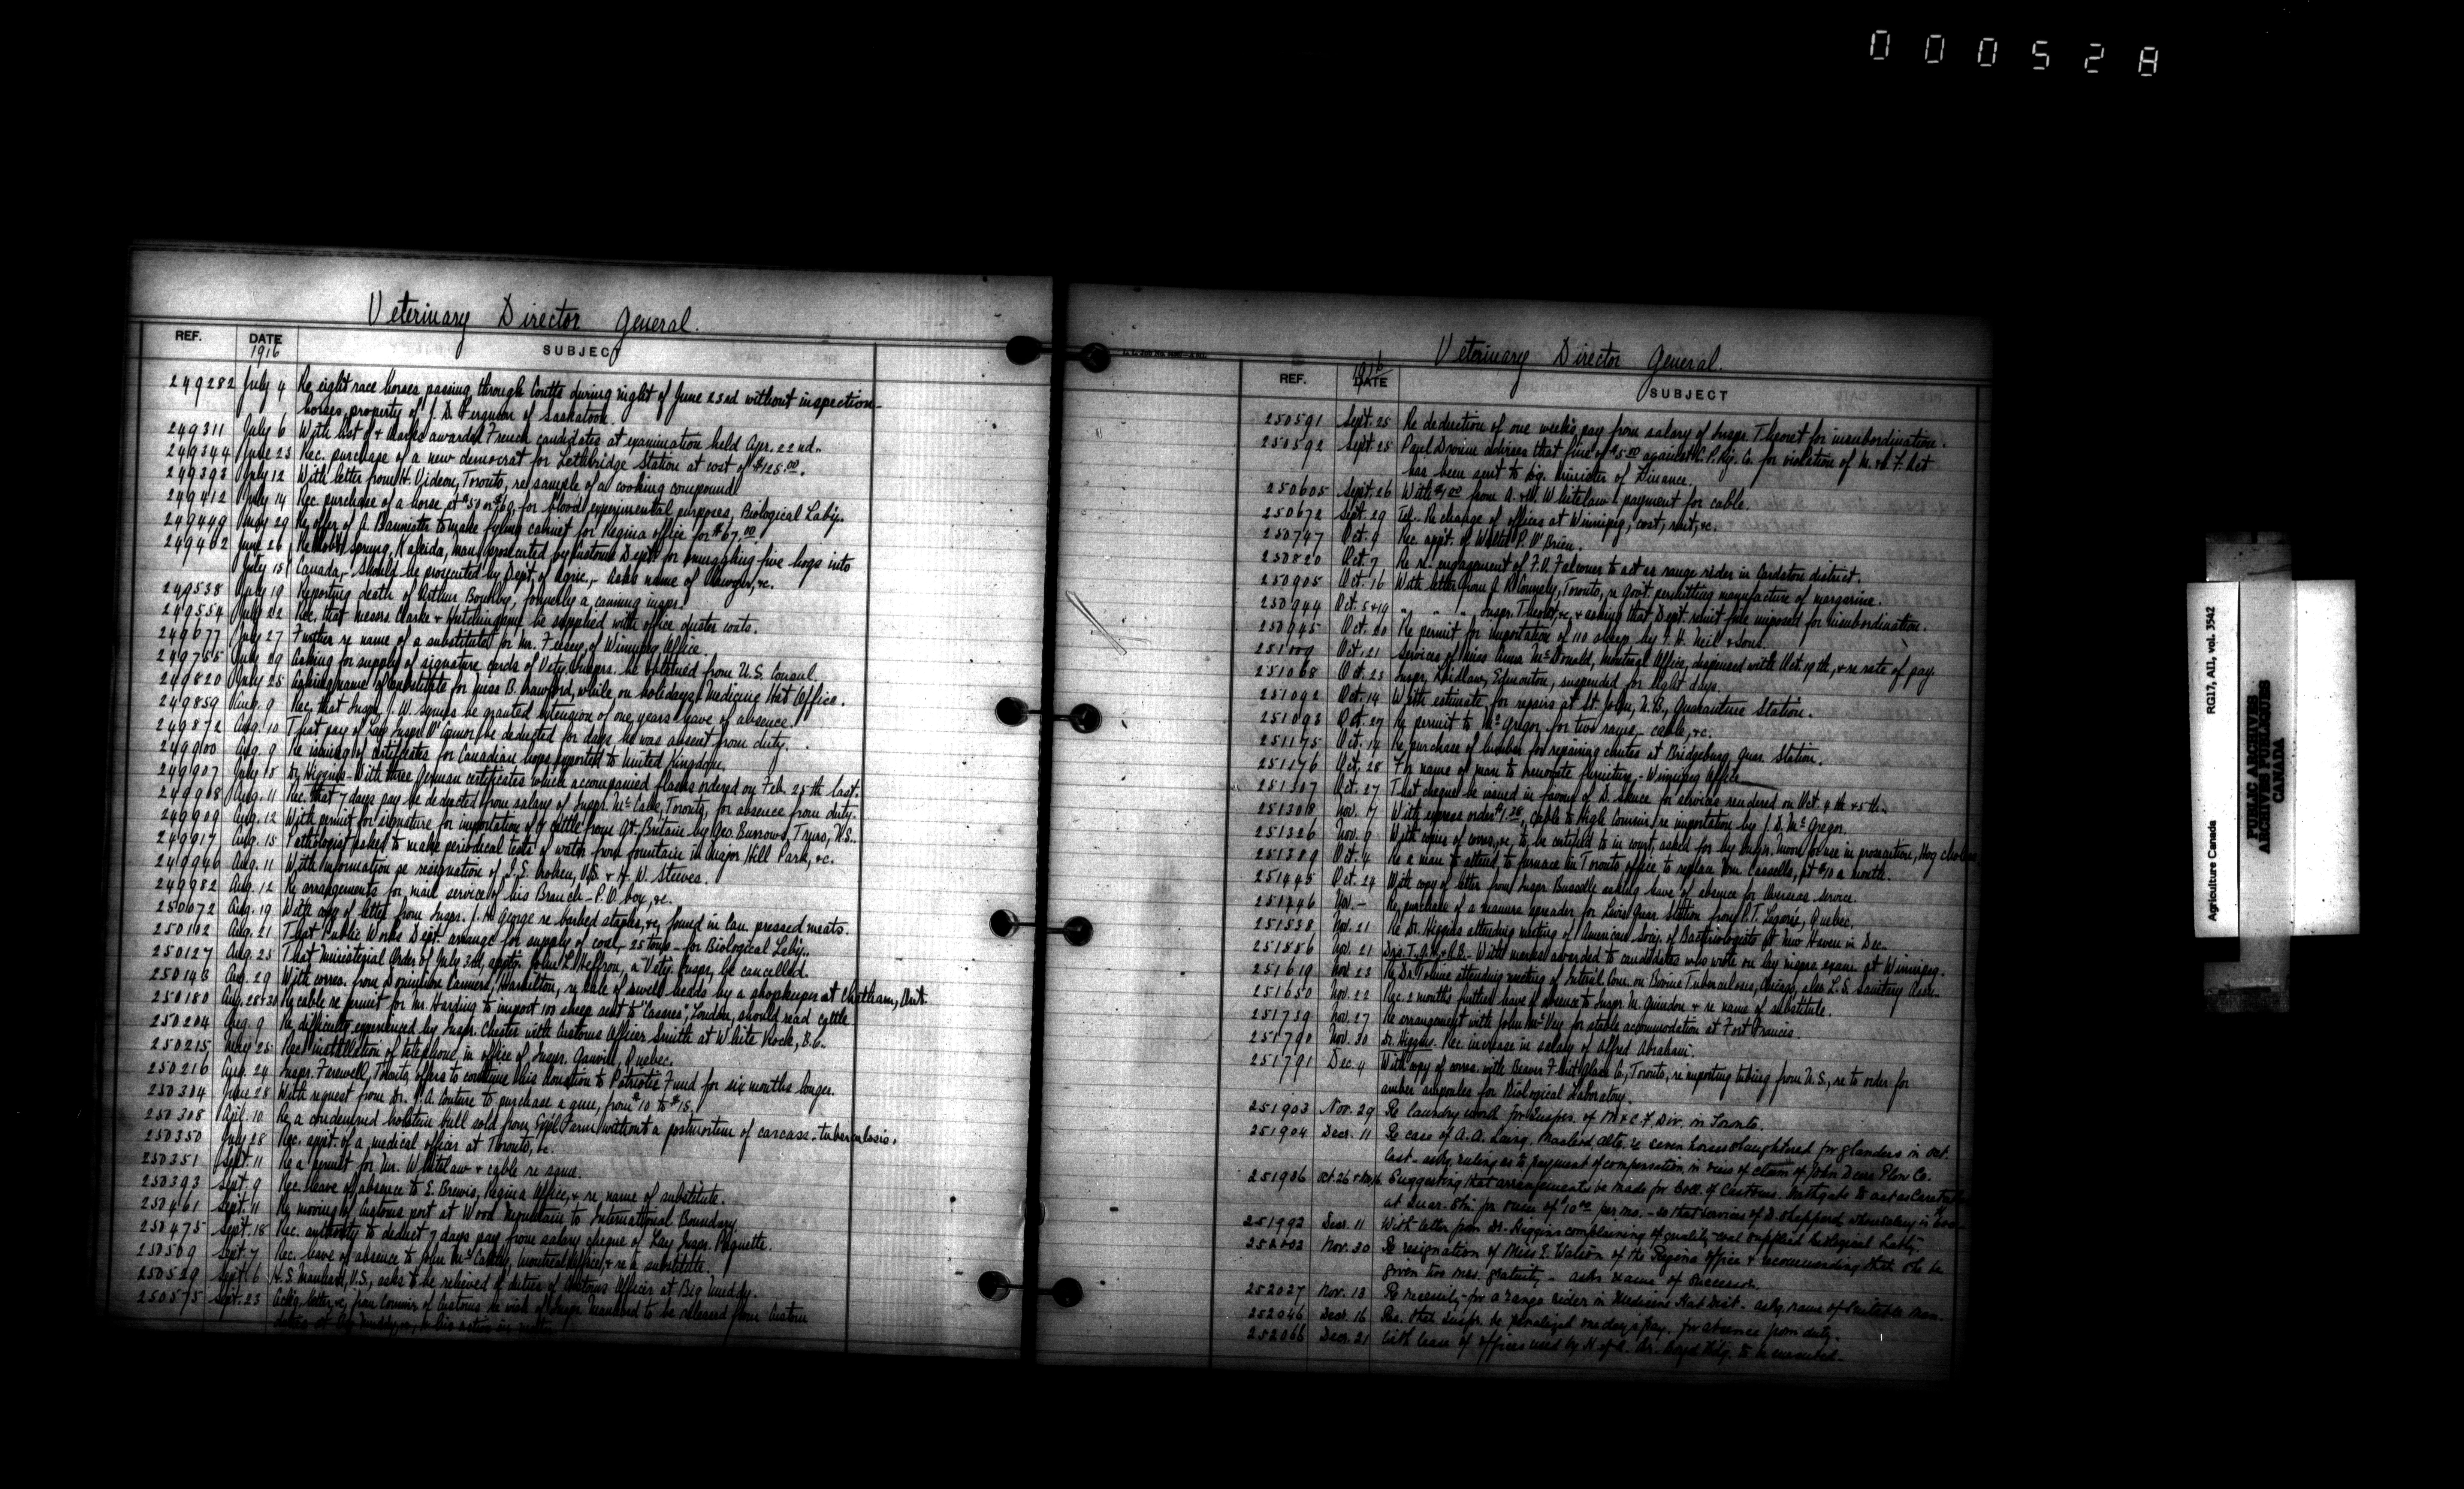 000528
Veterinary Director General.
REF. DATE SUBJECT
1916
249282 July 4 Re eight race horses passing through Coutts during night of June 23rd without inspection-
horses property of J. D. Ferguson of Saskatoon.
249311 July 6 With list of & marks awarded French candidates at examination held Apr. 22nd.
249344 June 23 Rec. purchase of a new democrat for Lethbridge Station at cost of $125.00.
249393 July 12 With letter from H. Videon, Toronto, re sample of a cooking compound.
249412 July 14 Rec. purchase of a horse at $50 or $60, for blood experimental purposes, Biological Laby.
249449 May 29 Re offer of A. Bannister to make filing cabinet for Regina office for $67.00.
249462 June 26 Re Robt. Spring, Kaleida, man prosecuted by Customs Dept. for smuggling five hogs into
July 15 Canada,- should be prosecuted by Dept. of Agric.,- asks name of lawyer, &c.
249538 July 19 Reporting death of Arthur Boultby, formerly a canning inspr.
249554 July 22 Rec. that messrs Clarke & Hutchings be supplied with office duster coats.
249677 July 27 Further re name of a substitute for Mr. of Winnipeg Office.
249755 July 29 Asking for supply of signature cards of Vety. Insprs. be obtained from U.S. Consul.
249820 July 25 Asking name of substitute for Miss B. Crawford, while on holidays, Medicine Hat Office.
249859 Aug. 9 Rec. that Inspr. J. W. Symes be granted extension of one years leave of absence.
249872 Aug. 10 That pay of Lay Inspr. O'Connor be deducted for days he was absent from duty.
249900 Aug. 9 Re issuing of certificates for Canadian hogs exported to United Kingdom.
249907 July 18 Dr. Higgins - With three German certificates which accompanied flasks ordered on Feb. 25th last.
249908 Aug. 11 Rec. that 7 days pay be deducted from salary of Inspr. McCabe, Toronto, for absence from duty.
249909 Aug. 12 With permit for signature for importation of 7 cattle from Gt. Britain by Geo. Burrows, Truro, N.S.
249917 Aug. 15 Pathologist asked to make periodical tests of water from fountain in Major Hill Park, &c.
249946 Aug. 11 With information re resignation of I. E. Croken, V.S. & H. W. Steeves.
249982 Aug. 12 Re arrangements for mail service of his Branch - P.O. box, &c.
250072 Aug. 19 With copy of letter from Inspr. J. H. George re barbed staples, &c. found in can pressed meats.
250102 Aug. 21 That Public Works Dept. arrange for supply of coal, 25 tons - for Biological Laby.
250127 Aug. 25 That ministerial Order of July 3rd, appt. John L. Heffron, a Vety. Inspr. be cancelled.
250143 Aug. 29 With corres. from Dominion Canners, Hamilton, re sale of swell heads by a shopkeeper at Chatham, Ont.
250180 Aug. 28+30 Re cable re permit for Mr. Harding to import 100 sheep sent to London, should read cattle
250204 Aug. 9 Re difficulty experienced by Inspr. Chester with Customs Officer Smith at White Rock, B.C.
250215 May 25 Rec. installation of telephone in office of Inspr. Quebec.
250216 Aug. 24 Inspr. Farewell, Toronto, offers to continue his donation to Patriotic Fund for six months longer.
250304 June 28 With request from Dr. J. A. Couture to purchase a gun, from $10 to $15.
250308 Apl. 10 Re a condemned holstein bull sold from Expl. Farm without a postmortem of carcass - tuberculosis.
250350 July 28 Rec. appt. of a medical officer at Toronto, &c.
250351 Sept. 11 Re a permit for Mr. Whitelaw & cable re same.
250393 Sept. 9 Rec. leave of absence to E. Brewis, Regina Office, & re name of substitute.
250461 Sept. 11 Re moving of customs port at Wood Mountain to International Boundary.
250475 Sept. 18 Rec. authority to deduct 7 days pay from salary cheque of Lay Inspr. Paquette.
250569 Sept. 7 Rec. leave of absence to John McCarthy, Montreal Office, & re a substitute.
250529 Sept. 6 H. S. Manhard, V.S., asks to be relieved of duties of Customs Officer at Big Muddy.
250575 Sept. 23 Ackg. letter, &c. from Commr. of Customs re wish of Inspr. Manhard to be released from Customs
duties at Big Muddy, &c.
Veterinary Director General.
REF. DATE SUBJECT
1916
250591 Sept. 25 Re deduction of one week's pay from salary of Inspr. Theoret for insubordination.
250592 Sept. 25 Paul advises that fine of $5.00 against C. P. Ry. Co. for violation of
has been sent to Dep. minister of Finance.
250605 Sept. 26 With $1.00 from A. & W. Whitelaw payment for cable.
250672 Sept. 29 Tel. Re change of offices at Winnipeg, cost, rent, &c.
250747 Oct. 4 Rec. appt. of Walter P. O'Brien.
250820 Oct. 7 Re re. engagement of F. D. Falconer to act as range rider in Cardston district.
250905 Oct. 16 With letter from J. R. Connely, Toronto, re Govt. permitting manufacture of margarine.
250944 Oct. 5+19 " " " Inspr. Theoret, &c. & asking that Dept. remit fine imposed for insubordination.
250945 Oct. 20 Re permit for importation of 110 sheep by J. H. Neil & Sons.
251009 Oct. 21 Services of Miss Anna McDonald, Montreal Office, dispensed with Oct. 19th, & re rate of pay.
251068 Oct. 23 Inspr. Laidlaw, Edmonton, suspended for eight days.
251092 Oct. 14 With estimate for repairs at St. John, N.B., Quarantine Station.
251093 Oct. 27 Re permit to McGregor for two - cable, &c.
251175 Oct. 14 Re purchase of lumber for repairing chutes at Bridgeburg Quar. Station.
251176 Oct. 28 For name of man to renovate furniture, - Winnipeg Office
251307 Oct. 27 That cheque be issued in favour of D. Spence for services rendered on Oct. 4th & 5th.
251308 Nov. 7 With express order $1.38, cable to High Commr. re importation by J. D. McGregor.
251326 Nov. 9 With copies of corres., &c. to be certified to in court, asked for by Inspr. Moore for use in prosecution, Hog cholera
251389 Oct. 4 Re a man to attend to furnace in Toronto office to replace Wm. Cassells, at $10 a month.
251445 Oct. 24 With copy of letter from Inspr. asking leave of absence for Overseas service.
251446 Nov. - Re purchase of a manure spreader for Levis Quar. Station from P. T. Legaré, Quebec.
251538 Nov. 21 Re Dr. Higgins attending meeting of American Socy. of Bacteriologists at New Haven in Dec.
251586 Nov. 21 With marks awarded to candidates who wrote on lay insprs. exam. at Winnipeg.
251619 Nov. 23 Re Dr. Tolmie attending meeting of Intnl. Com. on Bovine Tuberculosis, Chicago, also L.S. Sanitary Assn.
251650 Nov. 22 Rec. 2 months further leave of absence to Inspr. M. Guindon & re name of substitute.
251739 Nov. 27 Re arrangement with John McVey for stable accommodation at Fort Francis.
251790 Nov. 30 Dr. Higgins. Rec. increase in salary of Alfred Abraham.
251791 Dec. 4 With copy of corres. with Beaver Flint Glass Co., Toronto, re importing tubing from U.S., re to order for
amber ampoules for Biological Laboratory.
251903 Nov. 29 Re laundry work for Insprs. of M & C. F. Div. in Toronto.
251904 Decr. 11 Re case of A. A. Laing, Macleod, Alta. re seven horses slaughtered for glanders in Oct.
last - askg. ruling as to payment of compensation in view of claim of John Deere Plow Co.
251936 Oct. 26 Suggesting that arrangements be made for Coll. of Customs, Northgate to act as Caretaker
at Quar. Stn. for of $10.00 per mo. - so that services of D. Sheppard whose salary is
251992 Decr. 11 With letter from Dr. Higgins complaining of quality coal supplied Biological Labty.
252002 Nov. 30 Re resignation of Miss E. Watson of the Regina Office & recommending that she be
given two mos. gratuity - asks name of successor.
252027 Nov. 13 Re necessity for a range rider in Medicine Hat Dist. - askg. name of suitable man.
252046 Decr. 16 Rec. that Inspr. be penalized one day's pay for absence from duty.
252066 Decr. 21 With lease of offices used by H. of A. Br. Boyd Bldg. to be executed.
Agriculture Canada RG17, AII, vol. 3542
PUBLIC ARCHIVES
ARCHIVES PUBLIQUES
CANADA